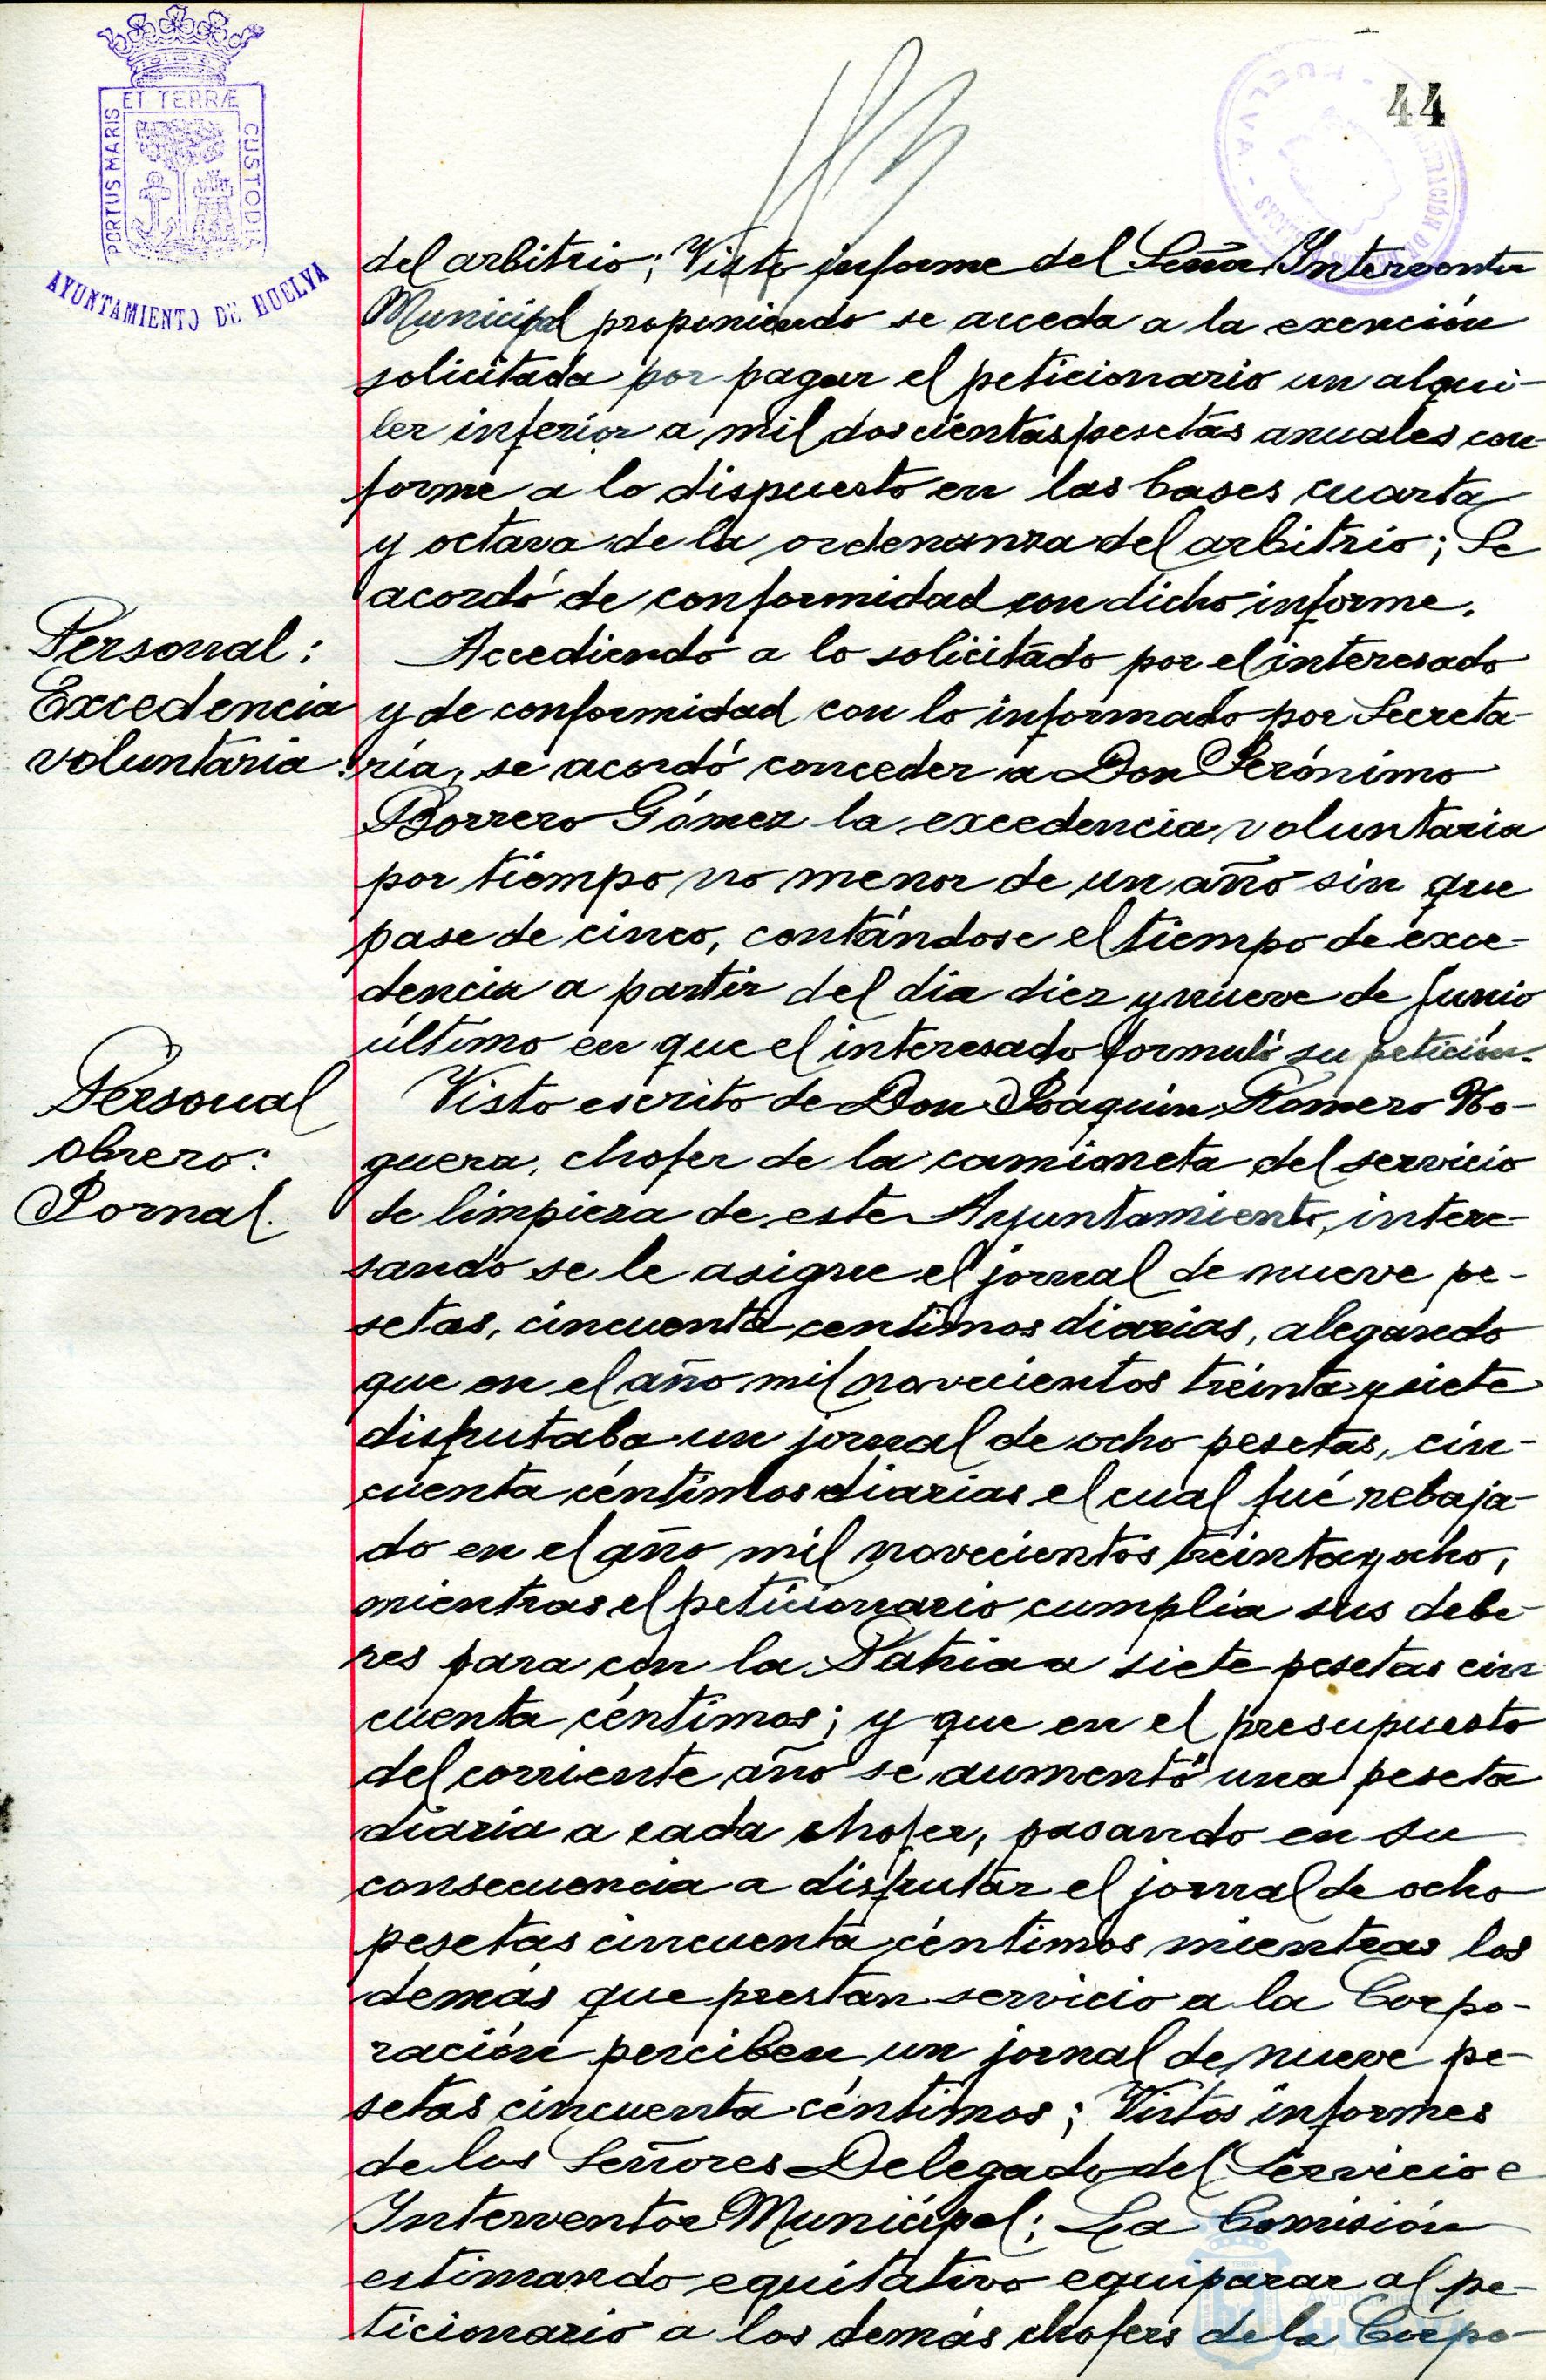 44
ET TERRÆ
PORTUS MARIS
CUSTODIA
AYUNTAMIENTO DE HUELVA
del arbitrio; Visto informe del Señor Interventor
Municipal proponiendo se acceda a la exención
solicitada por pagar el peticionario un alqui-
ler inferior a mil doscientas pesetas anuales con-
forme a lo dispuesto en las bases cuarta
y octava de la ordenanza del arbitrio; Se
acordó de conformidad con dicho informe.
Personal:
Excedencia
voluntaria:
Accediendo a lo solicitado por el interesado
y de conformidad con lo informado por Secreta-
ría, se acordó conceder a Don Jerónimo
Borrero Gómez la excedencia voluntaria
por tiempo no menor de un año sin que
pase de cinco, contándose el tiempo de exce-
dencia a partir del dia diez y nueve de Junio
último en que el interesado formuló su petición.
Personal
obrero:
Jornal.
Visto escrito de Don Joaquín Romero No-
guera, chofer de la camioneta del servicio
de limpieza de este Ayuntamiento, intere-
sando se le asigne el jornal de nueve pe-
setas, cincuenta centimos diarias, alegando
que en el año mil novecientos treinta y siete
disfrutaba un jornal de ocho pesetas, cin-
cuenta céntimos diarias el cual fué rebaja-
do en el año mil novecientos treinta y ocho,
mientras el peticionario cumplia sus debe-
res para con la Patria a siete pesetas cin-
cuenta céntimos; y que en el presupuesto
del corriente año se aumentó una peseta
diaria a cada chofer, pasando en su
consecuencia a disfrutar el jornal de ocho
pesetas cincuenta céntimos mientras los
demás que prestan servicio a la Corpo-
ración perciben un jornal de nueve pe-
setas cincuenta céntimos; Vistos informes
de los Señores Delegado del Servicio e
Interventor Municipal; La Comisión
estimando equitativo equiparar al pe-
ticionario a los demás chofers de la Corpo-